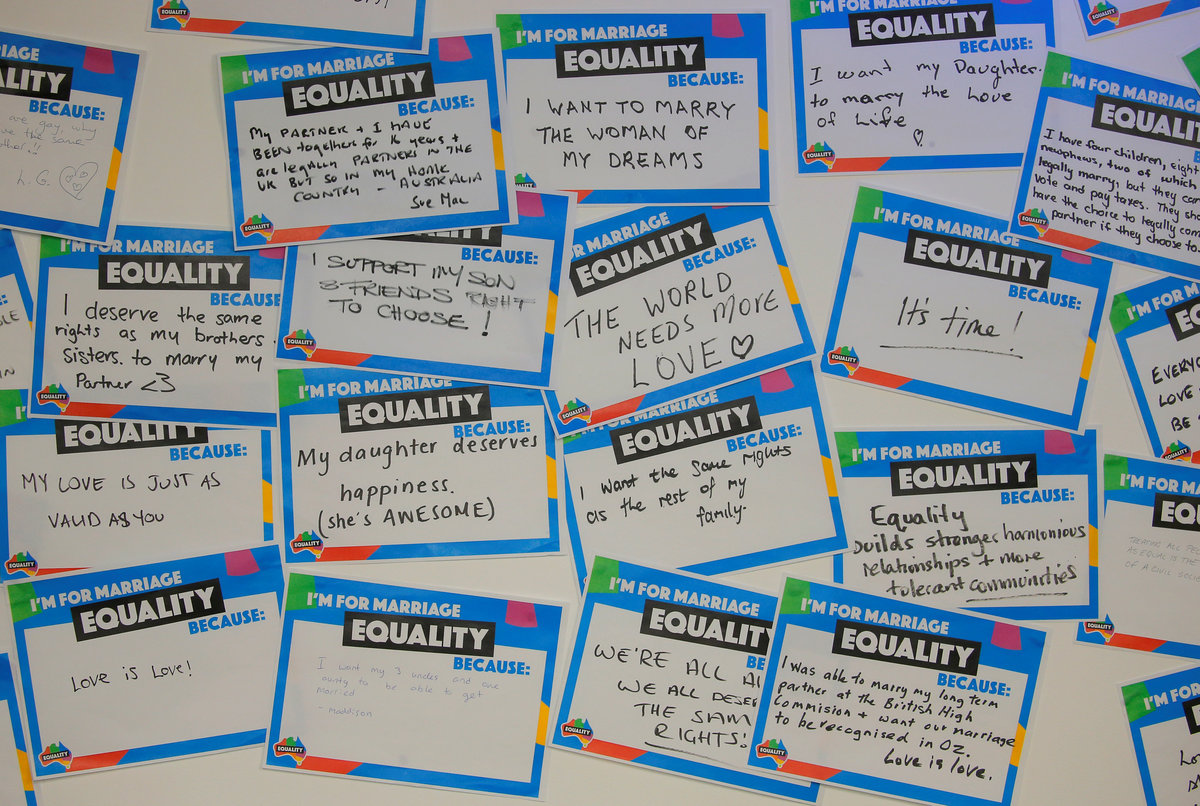 I'M FOR MARRIAGE
EQUALITY
BECAUSE:
are gay, why
the same
L. G.
I'M FOR MARRIAGE
EQUALITY
BECAUSE:
My PARTNER + I HAVE
BEEN togethers for 16 years +
are legally PARTNERS IN THE
UK BUT SO IN MY HOME
COUNTRY - AUSTRALIA
Sue Mac
EQUALITY
I'M FOR MARRIAGE
EQUALITY
BECAUSE:
I WANT TO MARRY
THE WOMAN OF
MY DREAMS
I'M FOR MARRIAGE
EQUALITY
BECAUSE:
I want my Daughter.
to marry the Love
of Life ♡
EQUALITY
I'M FOR MARRIAGE
I have four children, eight
newphews, two of which
legally marry, but they can
vote and pay taxes. They
have the choice to legally
partner if they choose to.
EQUALITY
I'M FOR MARRIAGE
EQUALITY
I deserve the same
rights as my brothers
Sisters. to marry my
Partner <3
EQUALITY
BECAUSE:
I SUPPORT MY SON
& FRIENDS RIGHT
TO CHOOSE!
EQUALITY
MARRIAGE
EQUALITY
BECAUSE:
THE WORLD
NEEDS MORE
LOVE ♡
EQUALITY
I'M FOR MARRIAGE
EQUALITY
BECAUSE:
It's time!
EQUALITY
EQUALITY
BECAUSE:
MY LOVE IS JUST AS
VALID AS YOU
EQUALITY
I'M FOR MARRIAGE
EQUALITY
BECAUSE:
My daughter deserves
happiness.
(she's AWESOME)
EQUALITY
I'M FOR MARRIAGE
EQUALITY
BECAUSE:
I want the same rights
as the rest of my
family.
I'M FOR MARRIAGE
EQUALITY
BECAUSE:
Equality
builds stronger, harmonious
relationships + more
tolerant communities
LOVE
BE
I'M FOR MARRIAGE
EQUALITY
BECAUSE:
Love is Love!
EQUALITY
I'M FOR MARRIAGE
EQUALITY
BECAUSE:
I want my 3 uncles and one
aunty to be able to get
married
- Maddison
EQUALITY
I'M FOR MARRIAGE
EQUALITY
WE'RE ALL
WE ALL
THE
RIGHTS!
EQUALITY
I'M FOR MARRIAGE
EQUALITY
BECAUSE:
I was able to marry my long term
partner at the British High
Commision + want our marriage
to be recognised in Oz.
Love is love.
EQUALITY
I'M FOR
TREATING ALL
AS EQUAL IS THE
OF A CIVIL
EQUALITY
I'M FOR